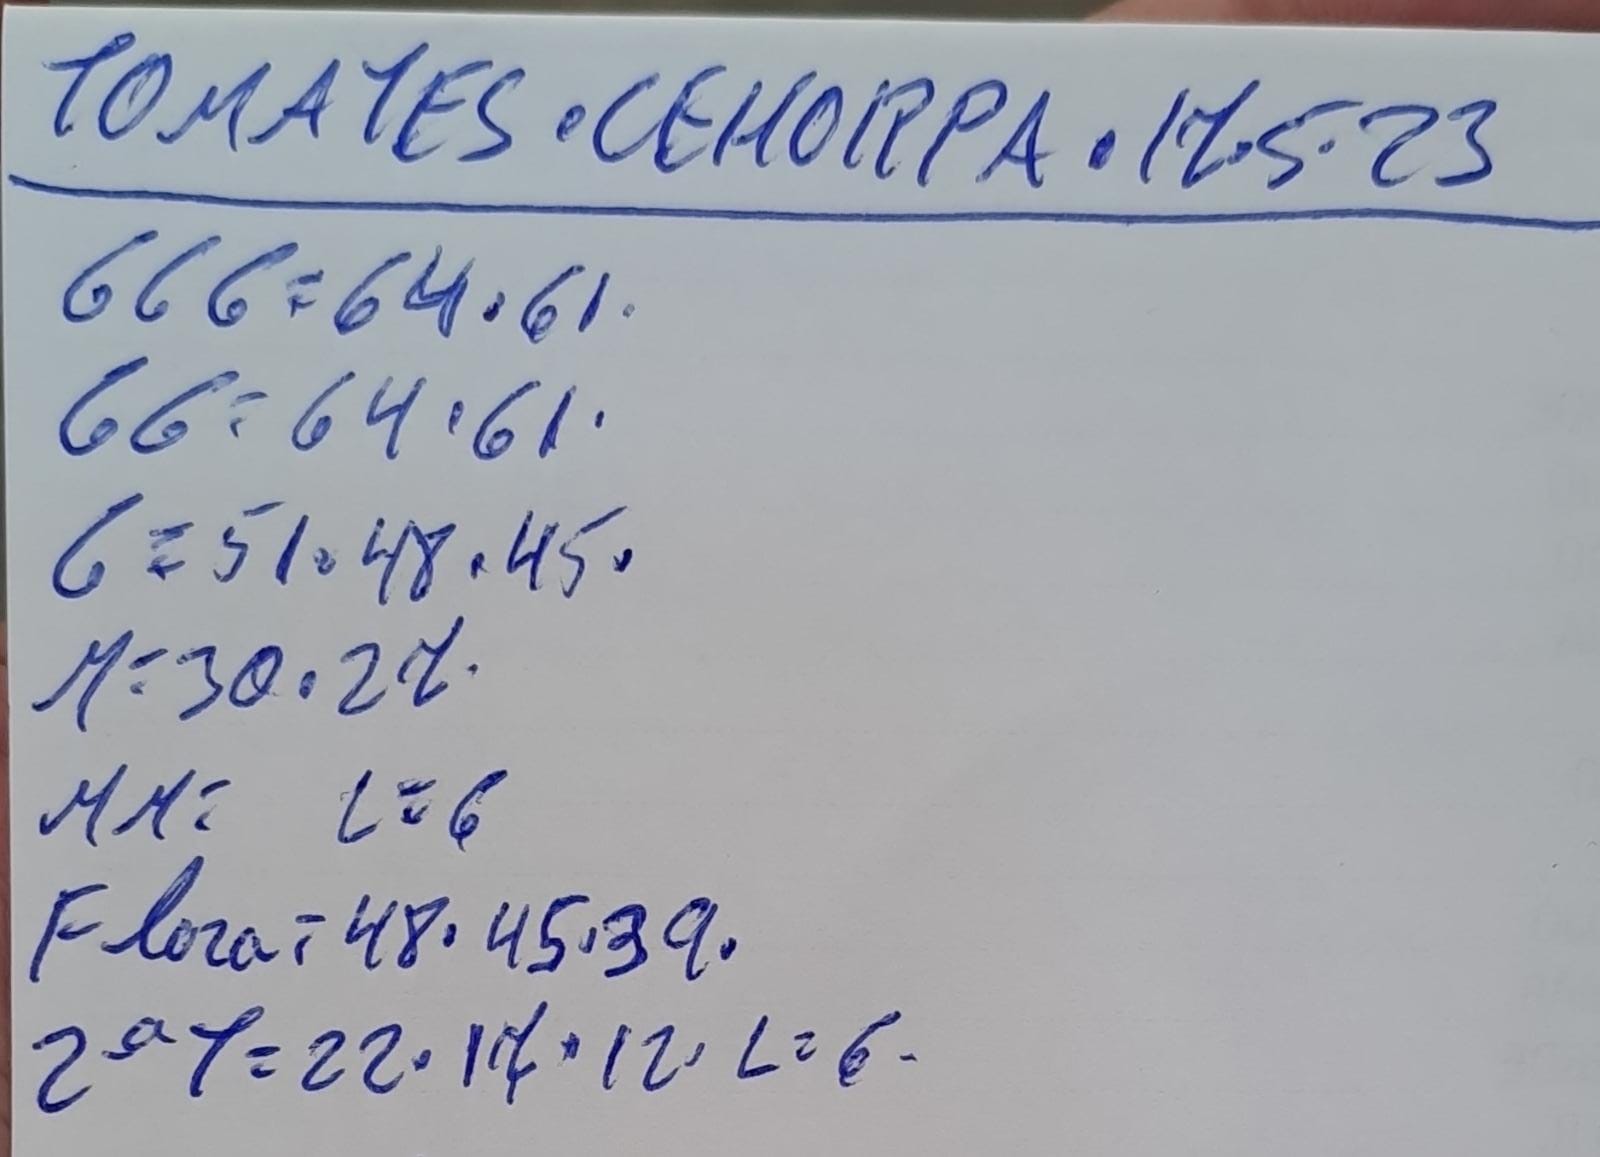 TOMATES.CEHORPA.17.5.23
GGG=64.61.
GG=64.61.
G=51.48.45.
M=30.27.
MM= L=6
Flora=48.45.39.
2ªT=22.17.12. L=6.